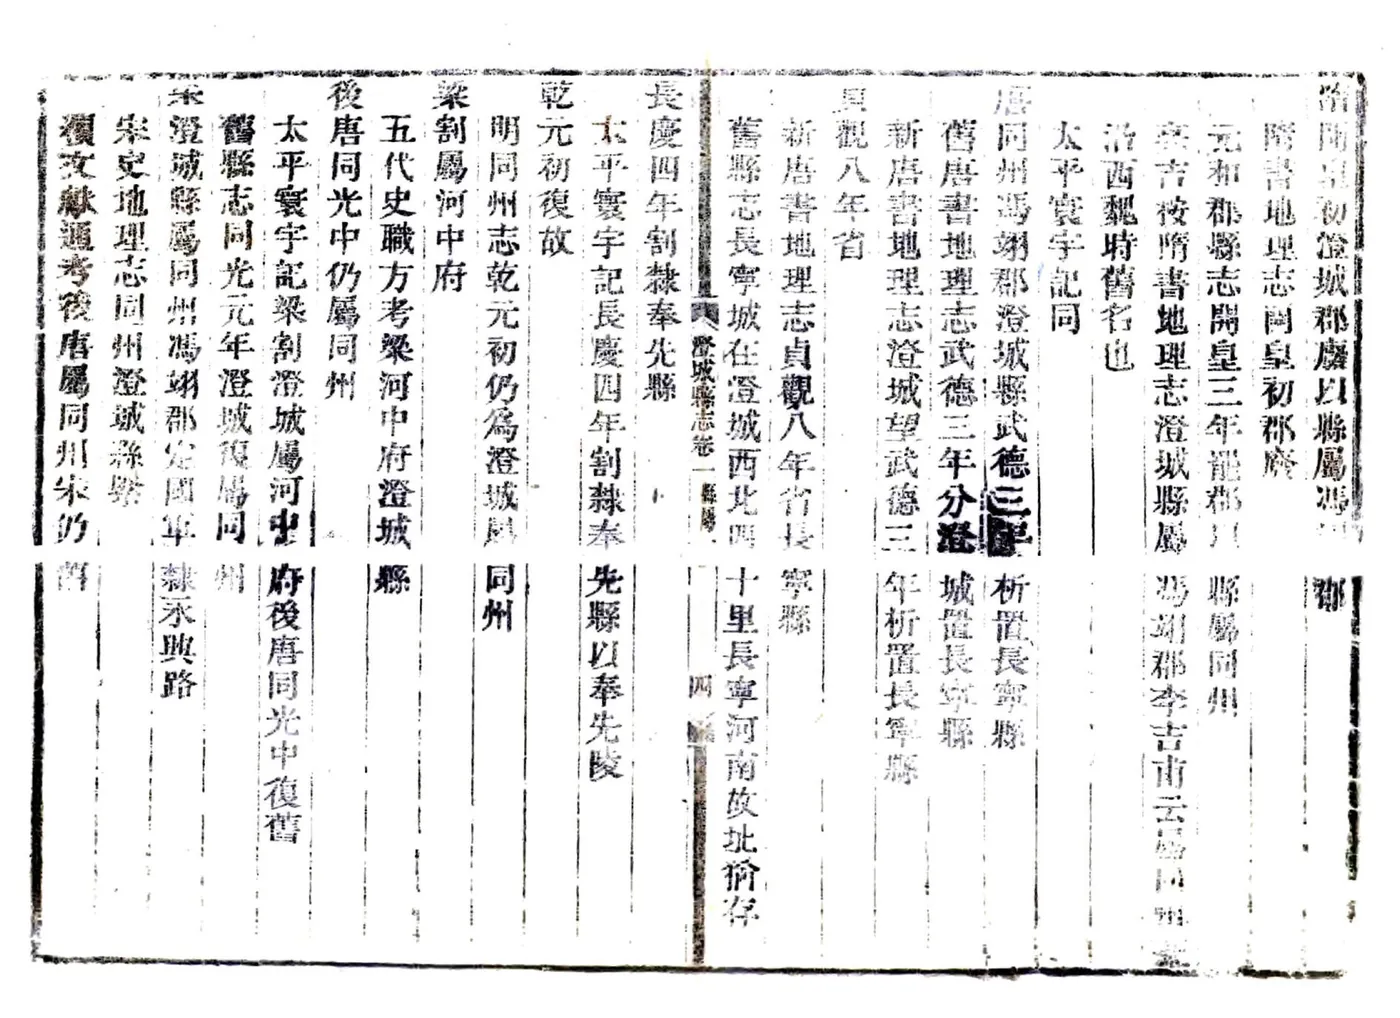 隋開皇初澄城郡廢以縣屬馮翊郡
隋書地理志開皇初郡廢
元和郡縣志開皇三年罷郡以縣屬同州
吉按隋書地理志澄城縣屬馮翊郡李吉甫云屬同州
沿西魏時舊名也
太平寰宇記同
唐同州馮翊郡澄城縣武德三年析置長寧縣
舊唐書地理志武德三年分澄城置長寧縣
新唐書地理志澄城望武德三年析置長寧縣
貞觀八年省
新唐書地理志貞觀八年省長寧縣
舊縣志長寧城在澄城西北四十里長寧河南故址猶存
澄城縣志卷一縣屬 四
長慶四年割隸奉先縣
太平寰宇記長慶四年割隸奉先縣以奉先陵
乾元初復故
明同州志乾元初仍為澄城屬同州
梁割屬河中府
五代史職方考梁河中府澄城縣
後唐同光中仍屬同州
太平寰宇記梁割澄城屬河中府後唐同光中復舊
舊縣志同光元年澄城復屬同州
宋澄城縣屬同州馮翊郡定國軍隸永興路
宋史地理志同州澄城縣緊
續文獻通考後唐屬同州宋仍舊